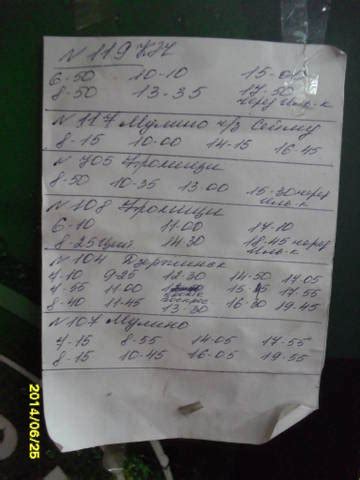 N 119 КЖ
6-50 10-10 15-05
8-50 13-35 17-50
через Иль-к
N 117 Мулино ч/з Сейму
8-15 10-00 14-15 16-45
N 105 Фролищи
8-50 10-35 13-00 15-30 через
Иль-к
N 108 Фролищи
6-10 11-00 17-10
8-25 14-30 18-45 через
Иль-к
N 104 Дзержинск
4-10 9-25 12-30 14-50 17-05
4-55 11-00 15-45 17-55
8-40 11-45 13-30 16-30 19-45
N 107 Мулино
4-15 8-55 14-05 17-55
8-15 10-45 16-05 19-55
2014/06/25